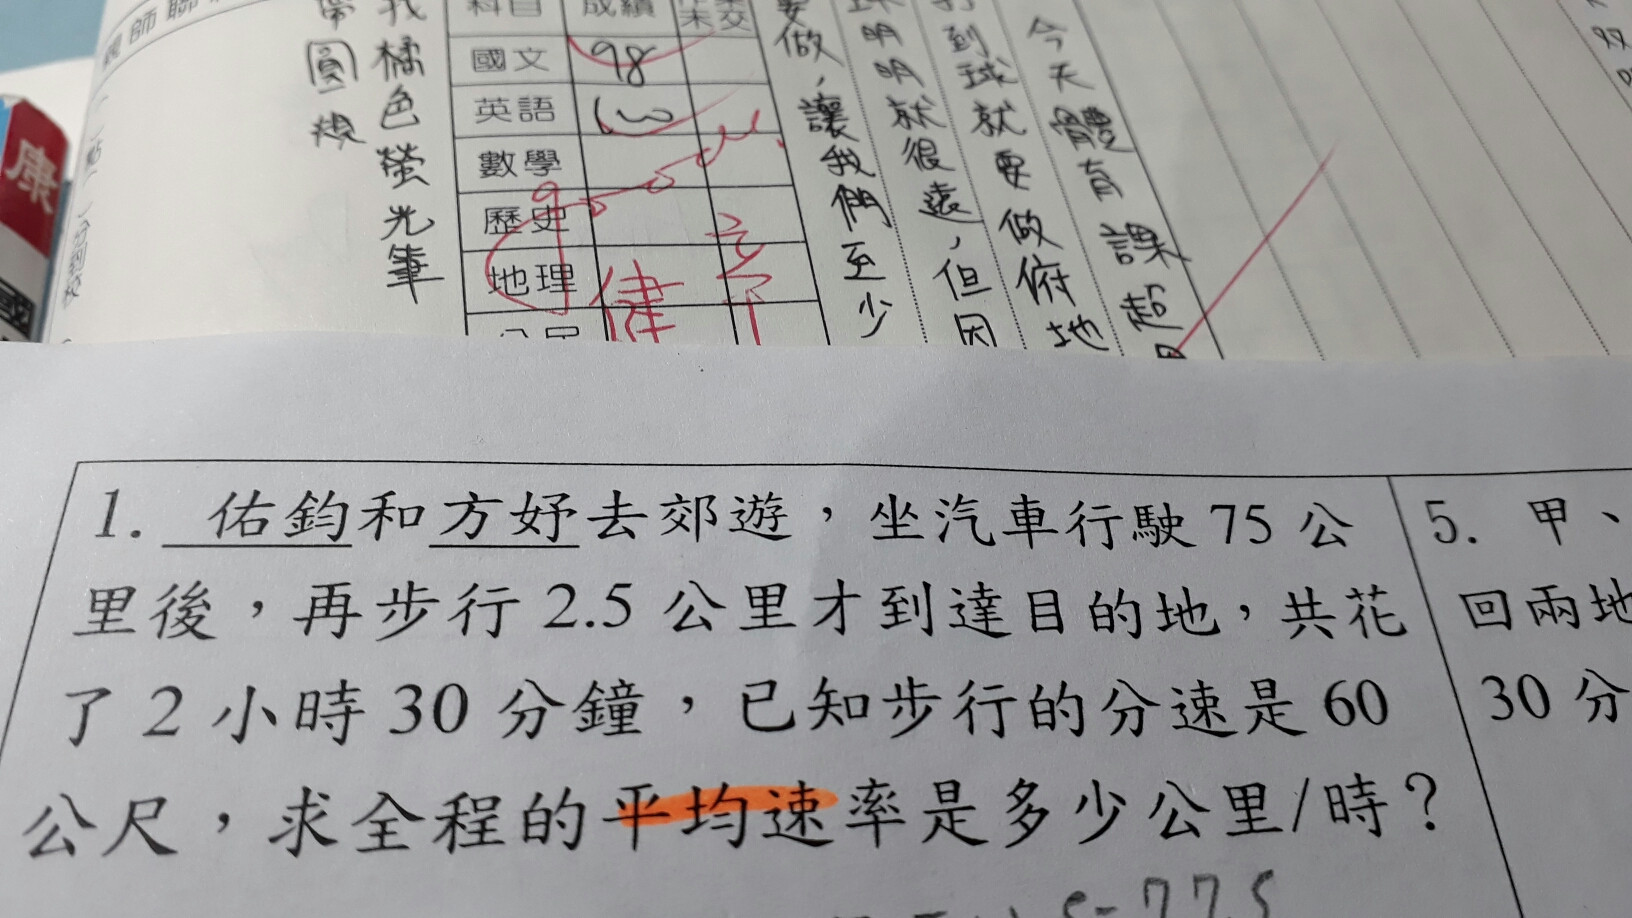 找橘色螢光筆
圓規
科目 成績
國文 98
英語 100
數學
歷史
地理
健
要做，讓我們至少
球明明就很遠，但因
打到球就要做俯地
今天體育課超
康
1. 佑鈞和方妤去郊遊，坐汽車行駛 75 公
里後，再步行 2.5 公里才到達目的地，共花
了 2 小時 30 分鐘，已知步行的分速是 60
公尺，求全程的平均速率是多少公里/時？
5. 甲、
回兩地
30 分